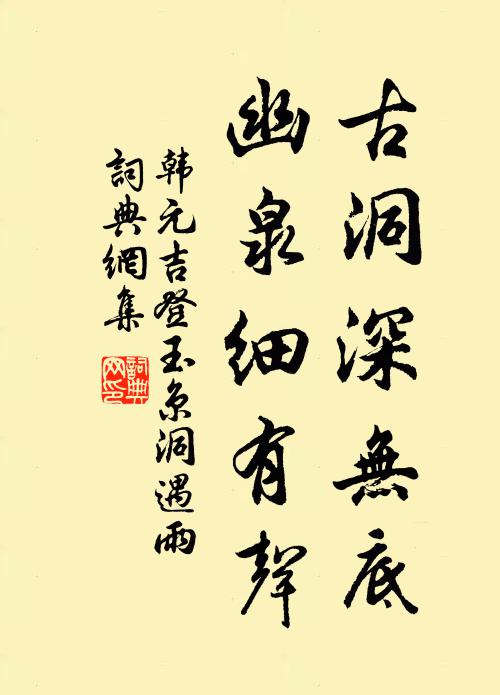 古洞深無底
幽泉細有聲
韩元吉登玉京洞遇雨
詞典網集
詞典網印